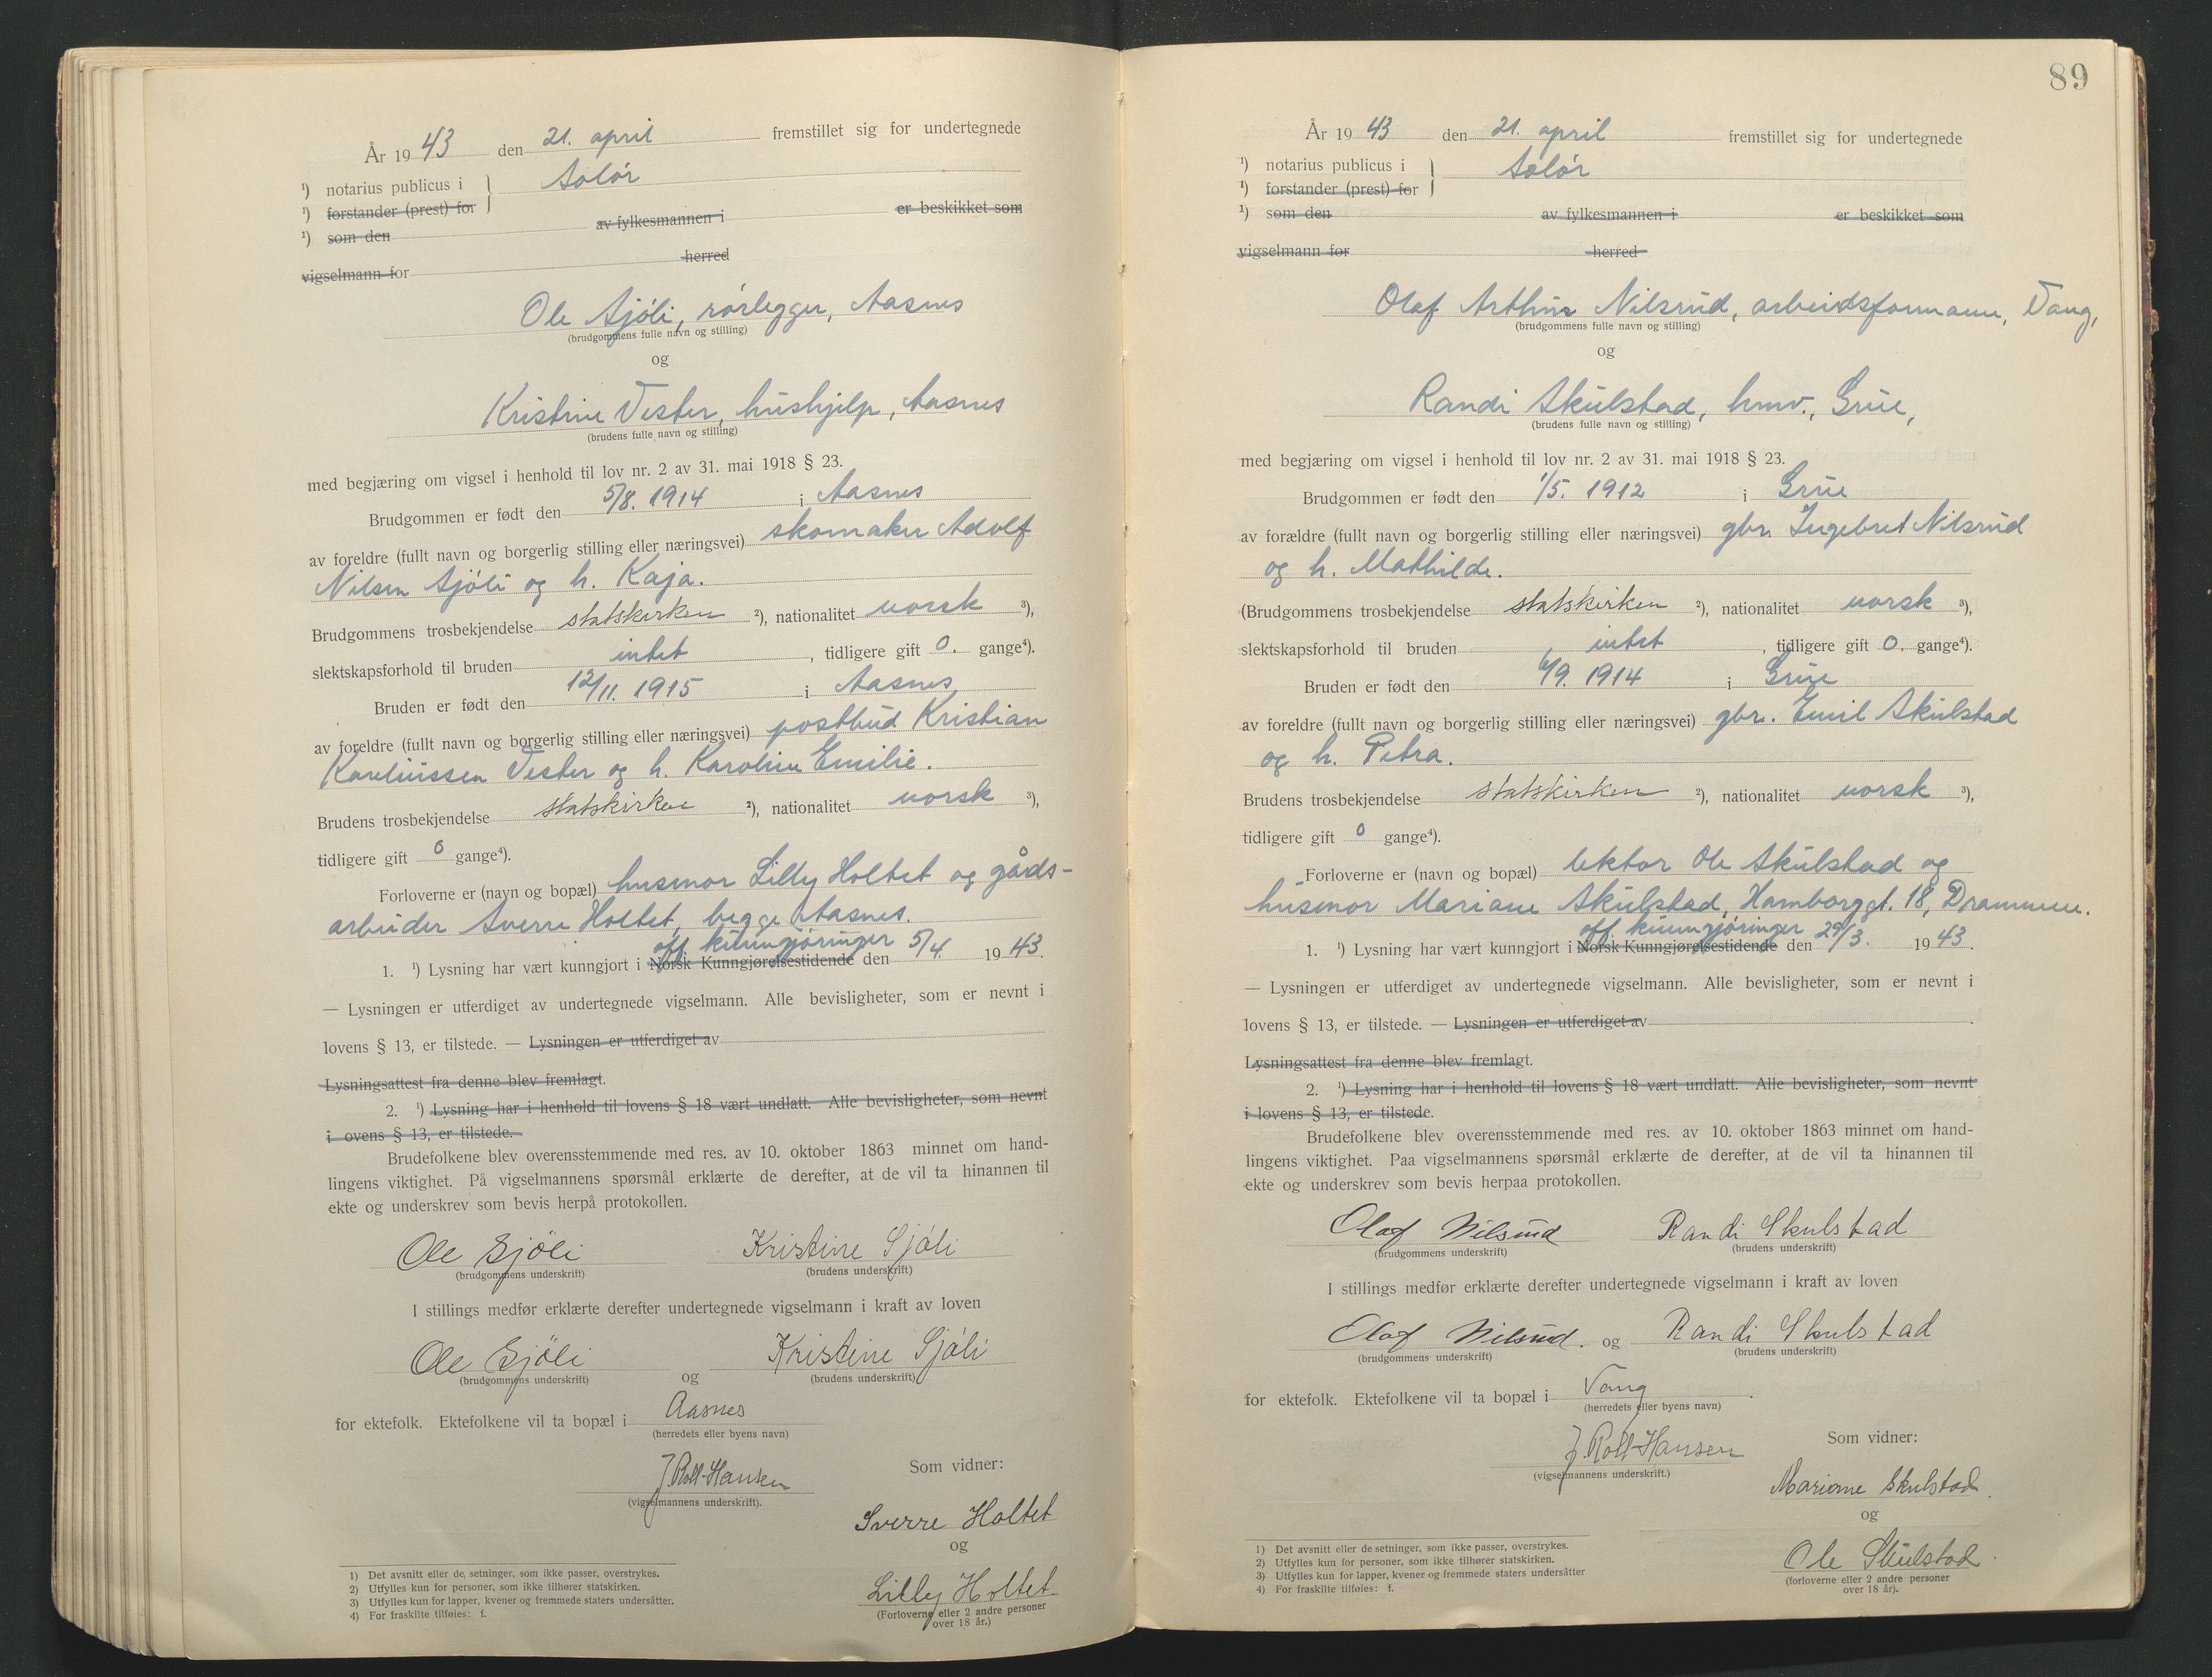 År 19 43 den 21. april fremstillet sig for undertegnede
¹) notarius publicus i } Solør
¹) forstander (prest) for
¹) som den av fylkesmannen i er beskikket som
vigselmann for herred
Ole Sjøli, rørlegger, Aasnes
(brudgommens fulle navn og stilling)
og
Kristine Vester, hushjelp, Aasnes
(brudens fulle navn og stilling)
med begjæring om vigsel i henhold til lov nr. 2 av 31. mai 1918 § 23.
Brudgommen er født den 5/8. 1914 i Aasnes
av foreldre (fullt navn og borgerlig stilling eller næringsvei) skomaker Adolf
Nilsen Sjøli og h. Kaja.
Brudgommens trosbekjendelse statskirken ²), nationalitet norsk ³),
slektskapsforhold til bruden intet, tidligere gift 0. gange⁴).
Bruden er født den 12/11. 1915 i Aasnes
av foreldre (fullt navn og borgerlig stilling eller næringsvei) postbud Kristian
Karelinssen Vester og h. Karoline Emilie.
Brudens trosbekjendelse statskirken ²), nationalitet norsk ³),
tidligere gift 0 gange⁴).
Forloverne er (navn og bopæl) husmor Lilly Holtet og gårds-
arbeider Sverre Holtet, begge Aasnes.
off kunngjøringer
1. ¹) Lysning har vært kunngjort i Norsk Kunngjørelsestidende den 5/4. 19 43.
— Lysningen er utferdiget av undertegnede vigselmann. Alle bevisligheter, som er nevnt i
lovens § 13, er tilstede. — Lysningen er utferdiget av
Lysningsattest fra denne blev fremlagt.
2. ¹) Lysning har i henhold til lovens § 18 vært undlatt. Alle bevisligheter, som nevnt
i ovens § 13, er tilstede.
Brudefolkene blev overensstemmende med res. av 10. oktober 1863 minnet om hand-
lingens viktighet. På vigselmannens spørsmål erklærte de derefter, at de vil ta hinannen til
ekte og underskrev som bevis herpå protokollen.
Ole Sjöli Kristine Sjøli
(brudgommens underskrift) (brudens underskrift)
I stillings medfør erklærte derefter undertegnede vigselmann i kraft av loven
Ole Sjöli og Kristine Sjøli
(brudgommens underskrift) (brudens underskrift)
for ektefolk. Ektefolkene vil ta bopæl i Aasnes
(herredets eller byens navn)
J. Roll-Hansen
(vigselmannens underskrift).
Som vidner:
Sverre Holtet
og
Lilly Holtet
(Forloverne eller 2 andre personer
over 18 år.)
1) Det avsnitt eller de setninger, som ikke passer, overstrykes.
2) Utfylles kun for personer, som ikke tilhører statskirken.
3) Utfylles kun for lapper, kvener og fremmede staters undersåtter.
4) For fraskilte tilføies: f.
89
År 19 43 den 21. april fremstillet sig for undertegnede
¹) notarius publicus i } Solør
¹) forstander (prest) for
¹) som den av fylkesmannen i er beskikket som
vigselmann for herred
Olaf Arthur Nilsrud, arbeidsformann, Vang,
(brudgommens fulle navn og stilling)
og
Randi Skulstad, hmv., Grue,
(brudens fulle navn og stilling)
med begjæring om vigsel i henhold til lov nr. 2 av 31. mai 1918 § 23.
Brudgommen er født den 1/5. 1912 i Grue
av forældre (fullt navn og borgerlig stilling eller næringsvei) gbr. Ingebret Nilsrud
og h. Mathilde.
(Brudgommens trosbekjendelse statskirken ²), nationalitet norsk ³),
slektskapsforhold til bruden intet, tidligere gift 0. gange⁴).
Bruden er født den 6/9. 1914 i Grue
av foreldre (fullt navn og borgerlig stilling eller næringsvei) gbr. Emil Skulstad
og h. Petra.
Brudens trosbekjendelse statskirken ²), nationalitet norsk ³),
tidligere gift 0 gange⁴).
Forloverne er (navn og bopæl) lektor Ole Skulstad og
husmor Mariane Skulstad, Hamborggt. 18, Drammen.
off kunngjøringer
1. ¹) Lysning har vært kunngjort i Norsk Kunngjørelsestidende den 29/3. 19 43.
— Lysningen er utferdiget av undertegnede vigselmann. Alle bevisligheter, som er nevnt i
lovens § 13, er tilstede. — Lysningen er utferdiget av
Lysningsattest fra denne blev fremlagt.
2. ¹) Lysning har i henhold til lovens § 18 vært undlatt. Alle bevisligheter, som nevnt
i lovens § 13, er tilstede.
Brudefolkene blev overensstemmende med res. av 10. oktober 1863 minnet om hand-
lingens viktighet. Paa vigselmannens spørsmål erklærte de derefter, at de vil ta hinannen til
ekte og underskrev som bevis herpaa protokollen.
Olaf Nilsrud Randi Skulstad
(brudgommens underskrift) (brudens underskrift)
I stillings medfør erklærte derefter undertegnede vigselmann i kraft av loven
Olaf Nilsrud. og Randi Skulstad
(brudgommens underskrift) (brudens underskrift)
for ektefolk. Ektefolkene vil ta bopæl i Vang.
(herredets eller byens navn)
J. Roll-Hansen
(vigselmannens underskrift.)
Som vidner:
Mariane Skulstad.
og
Ole Skulstad.
(forloverne eller 2 andre personer
over 18 år).
1) Det avsnitt eller de setninger, som ikke passer, overstrykes.
2) Utfylles kun for personer, som ikke tilhører statskirken.
3) Utfylles kun for lapper, kvener og fremmede staters undersåtter
4) For fraskilte tilføies: f.